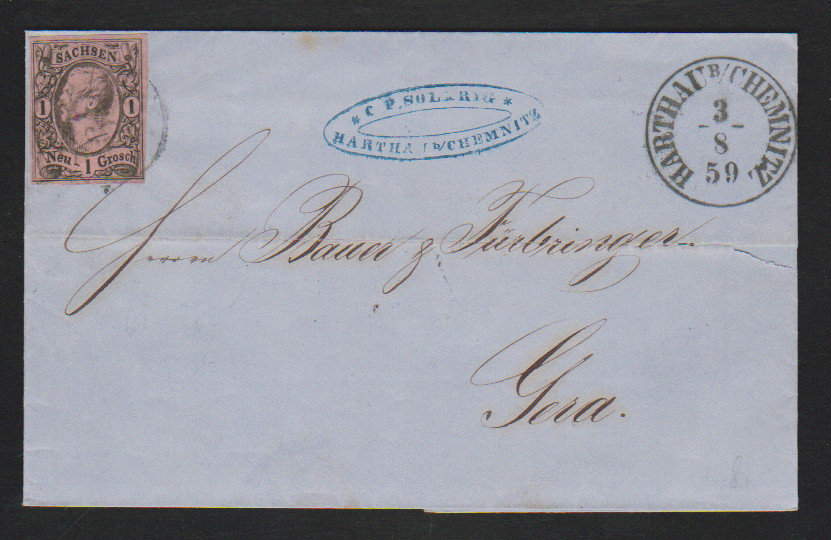 SACHSEN
1 1
Neu- 1 Grosch
* C. P. SOLBRIG *
HARTHAU b/CHEMNITZ
HARTHAU B/CHEMNITZ
3
8
59
Herren Bauer & Fürbringer
Gera.
8